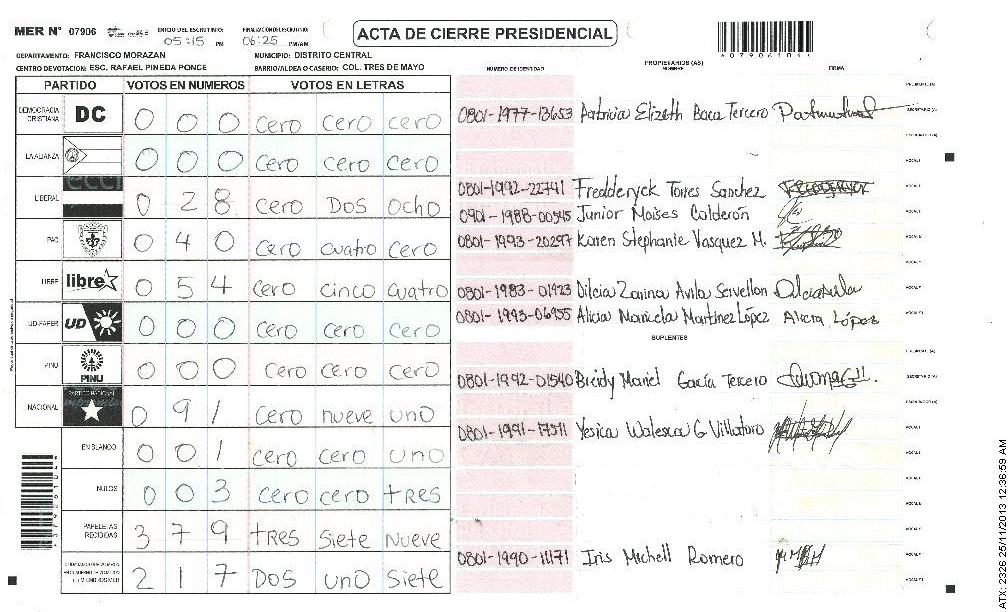 MER N° 07906 INICIO DEL ESCRUTINIO: 05:15 PM FINALIZACION DEL ESCRUTINIO: 06:25 PM/AM
ACTA DE CIERRE PRESIDENCIAL
DEPARTAMENTO: FRANCISCO MORAZAN MUNICIPIO: DISTRITO CENTRAL
CENTRO DE VOTACION: ESC. RAFAEL PINEDA PONCE BARRIO/ALDEA O CASERIO: COL. TRES DE MAYO
PARTIDO VOTOS EN NUMEROS VOTOS EN LETRAS
DEMOCRACIA CRISTIANA DC 0 0 0 cero cero cero
LA ALIANZA 0 0 0 cero cero cero
LIBERAL 0 28 cero Dos ocho
PAC 0 4 0 cero cuatro cero
LIBRE libre 0 5 4 cero cinco cuatro
UD-FAPER UD 0 0 0 cero cero cero
PINU PINU 0 0 0 cero cero cero
NACIONAL PARTIDO NACIONAL 0 9 1 cero nueve uno
EN BLANCO 0 0 1 cero cero uno
NULOS 0 0 3 cero cero tres
PAPELETAS RECIBIDAS 3 7 9 tres siete nueve
2 1 7 Dos uno siete
NUMERO DE IDENTIDAD PROPIETARIOS (AS) NOMBRE FIRMA
0801-1977-13653 Patricia Elizeth Baca Tercero
0801-1992-22741 Fredderyck Torres Sanchez
0901-1988-00545 Junior Moises Calderón
0801-1993-20297 Karen Stephanie Vasquez M.
0801-1983-01423 Dilcia Zarina Avila Servellon
0801-1993-06955 Alicia Maricela Martinez López Alicia López
SUPLENTES
0801-1992-01540 Breidy Mariel Garcia Tercero
0801-1991-17511 Yesica Walesca G Villatoro
0801-1990-11171 Iris Michell Romero
ATX: 2326 25/11/2013 12:36:59 AM